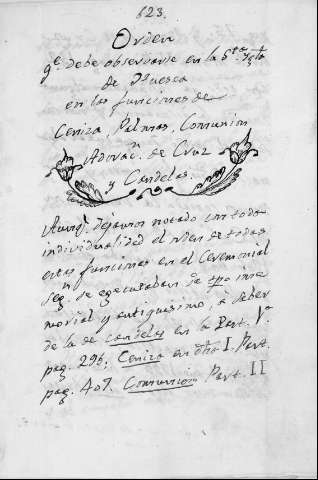 623.
Orden
qᵉ debe observarse en la Sᵗᵃ Iglᵃ
de Huesca
en las funciones de
Ceniza, Palmas, Comunion
Adoracⁿ. de Cruz
y Candelas.
Aunqᵉ dejamos notado con toda
individualidad el orden de todas
estas funciones en el Ceremonial
segⁿ. se egecutaban de tpo inme
morial y antiquisimo, à saber
de la de candelas en la Part. Vᵃ.
pag. 296; Ceniza en dha I. Part.
pag. 407. Comunion Part. II